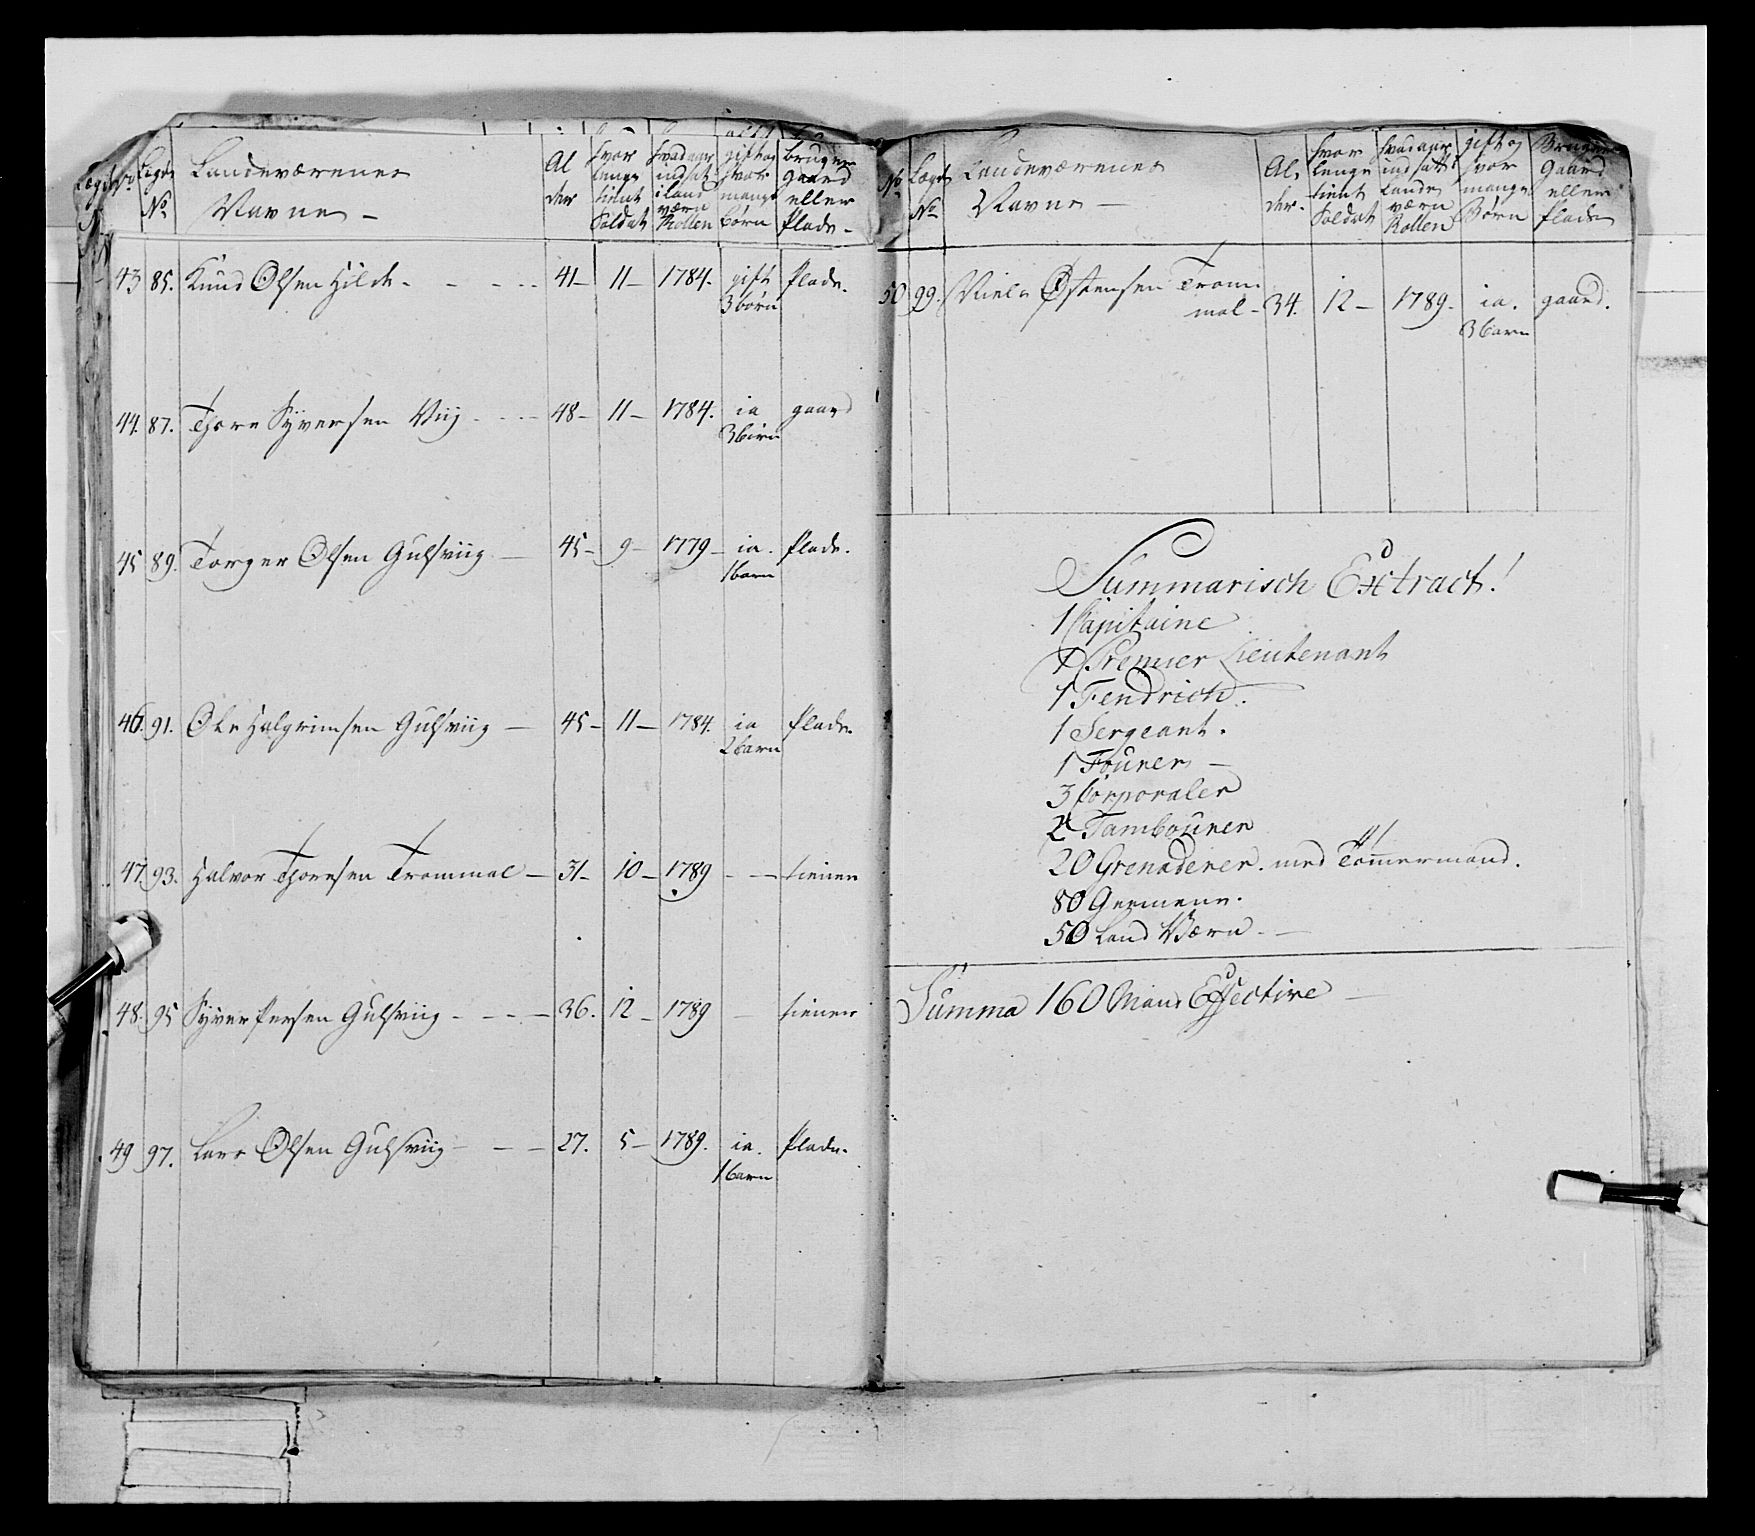 No Lægd No Landeværenes Navne – Al der hvor lenge tient Soldat hvad aar indsat i land værn Rollen gift og hvor mange børn bruger gaard eller Plads –
43 85. Knud Olsen Hilde - - - - 41 – 11 – 1784. gift Plads.
3 børn
44. 87. Thore Syversen Viig - - - 48 – 11 – 1784. ia gaard
3 børn
45 89. Torger Olsen Gulsviig – 45 – 9 – 1779 – ia. Plads.
1 barn
46. 91. Ole Halgrimsen Gulsviig – 45 – 11 – 1784. ia Plads.
2 barn
47. 93. Halvor Thoresen Trommal – 31 – 10 – 1789 - – tiener
48. 95 Syver Persen Gulsviig - - - – 36. 12 – 1789 – tiener
49 97. Lars Olsen Gulsviig – – – 27. 5 – 1789. ia. Plads.
1 barn
No Lægd No Landeværenes Navne – Al, der. hvor lenge tient Soldat hvad aar indsatt Lande værn Rollen gift og hvor mange Børn Bruger Gaard eller Plads
50 99. Niels Østensen Trom-
mal – 34. 12 – 1789. ia. gaard.
3 barn
Summarisch Extract!
1 Capitaine
1 Premier Lieutenant
1 Fendrich.
1 Sergeant.
1 Fourer –
3 Corporaler
2 Tambourer
20 Grenaderer. med Tømmermand.
80 Gemene.
50 Land Værn. –
Summa 160 Mand Effective –